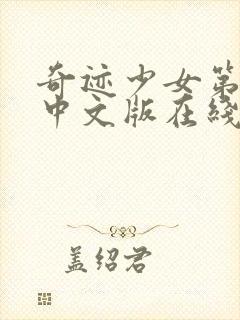 奇迹少女第
中文版在线
盖绍君